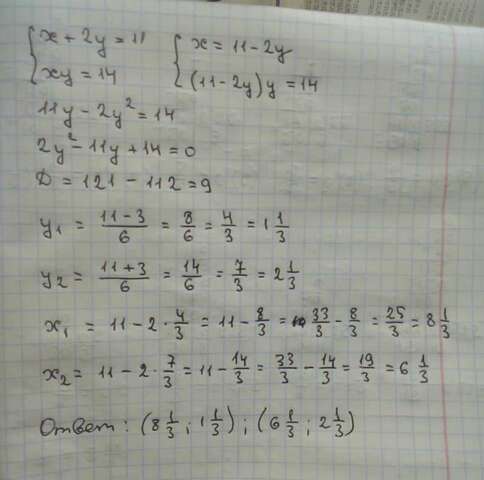 {x + 2y = 11 {x = 11 - 2y
{xy = 14 {(11 - 2y)y = 14
11y - 2y² = 14
2y² - 11y + 14 = 0
D = 121 - 112 = 9
y₁ = (11 - 3)/6 = 8/6 = 4/3 = 1 1/3
y₂ = (11 + 3)/6 = 14/6 = 7/3 = 2 1/3
x₁ = 11 - 2 · 4/3 = 11 - 8/3 = 33/3 - 8/3 = 25/3 = 8 1/3
x₂ = 11 - 2 · 7/3 = 11 - 14/3 = 33/3 - 14/3 = 19/3 = 6 1/3
Ответ: (8 1/3 ; 1 1/3) ; (6 1/3 ; 2 1/3)